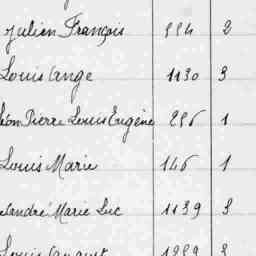 Julien François 994 2
Louis Ange 1130 3
Léon Pierre Louis Eugène 296 1
Louis Marie 146 1
Marie Luc 1139 3
Louis August 3